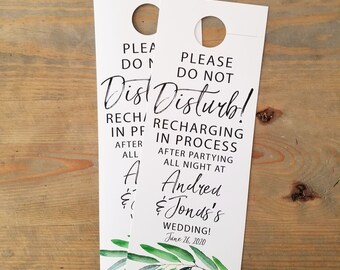 PLEASE
DO NOT
Disturb!
RECHARGING
IN PROCESS
AFTER PARTYING
ALL NIGHT AT
Andrea
& Jonas's
WEDDING!
June 26, 2020
PLEASE
DO NO
Distu
RECHAR
IN PRO
AFTER PA
ALL NI
And
& Jon
WEDD
June